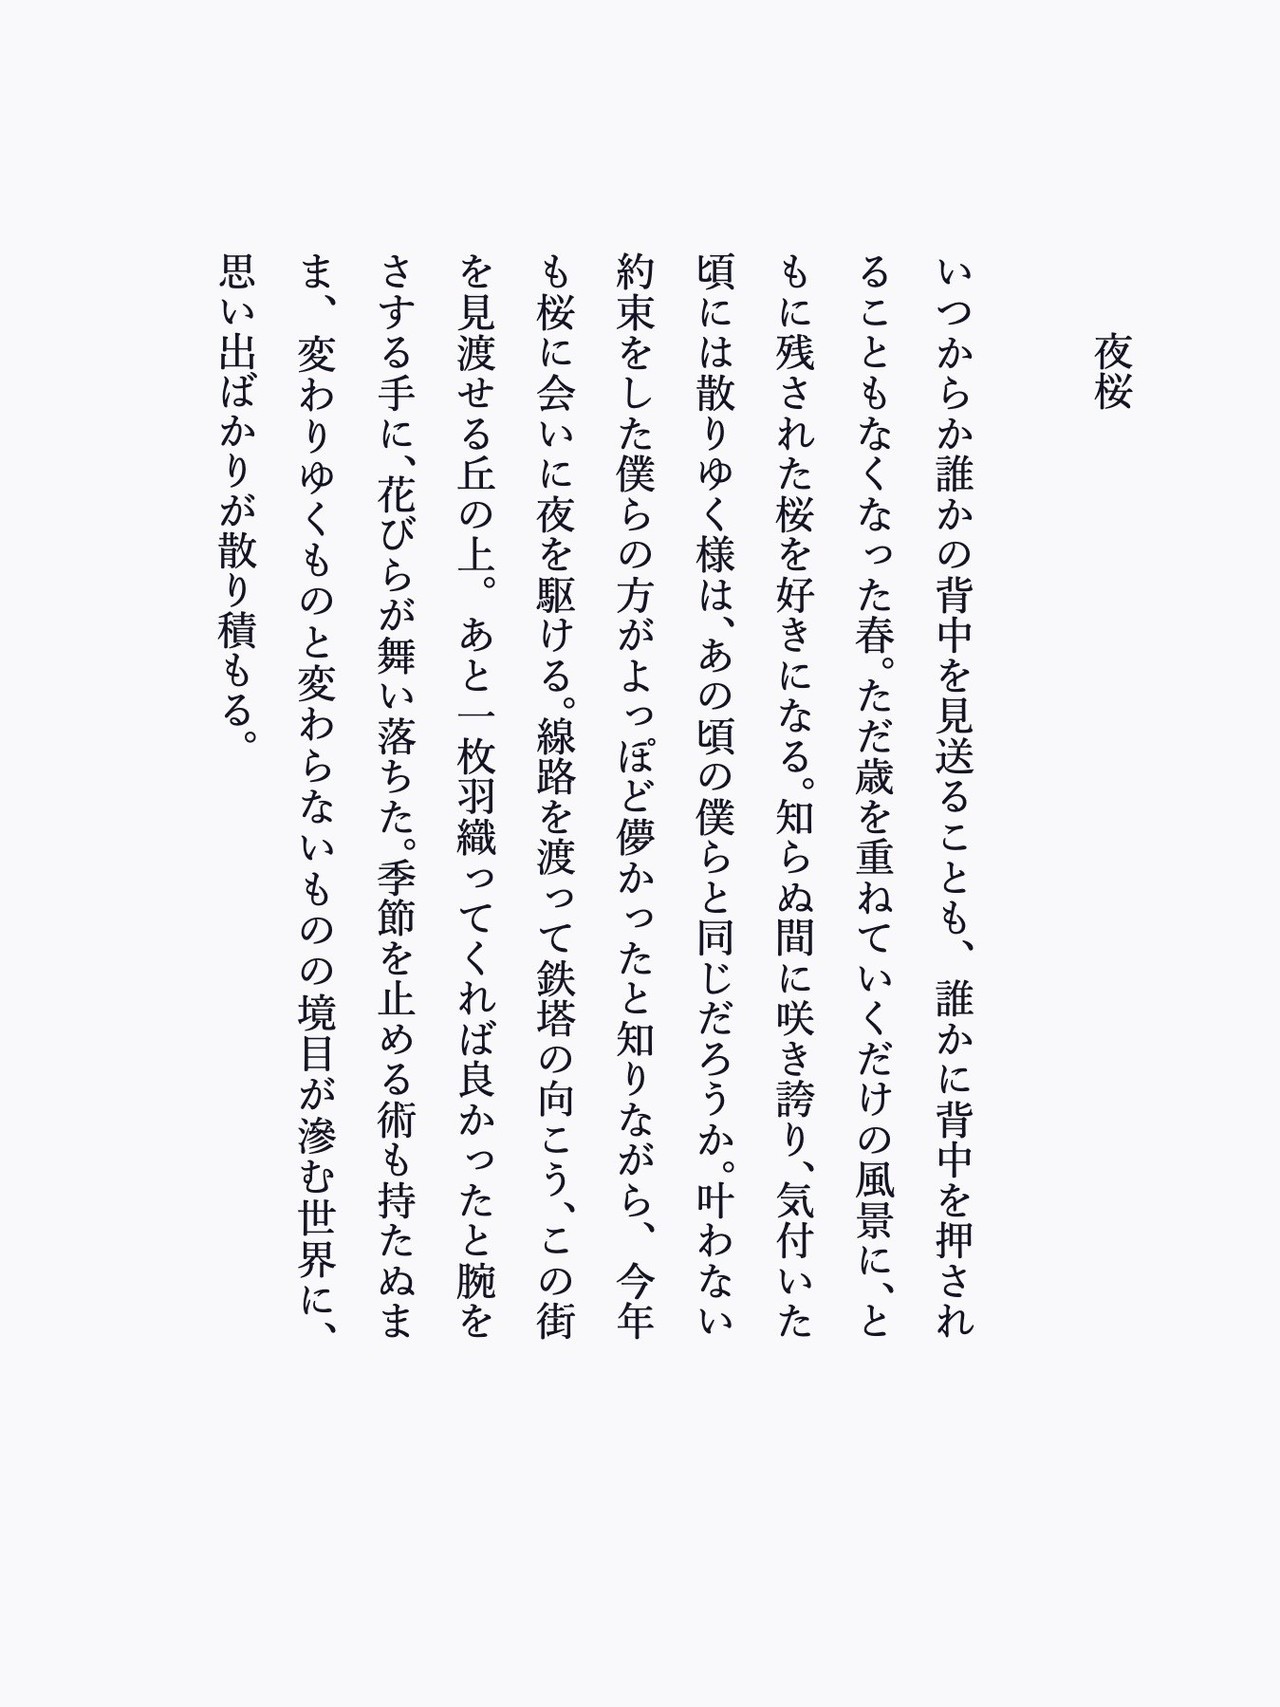 夜桜
いつからか誰かの背中を見送ることも、誰かに背中を押され
ることもなくなった春。ただ歳を重ねていくだけの風景に、と
もに残された桜を好きになる。知らぬ間に咲き誇り、気付いた
頃には散りゆく様は、あの頃の僕らと同じだろうか。叶わない
約束をした僕らの方がよっぽど儚かったと知りながら、今年
も桜に会いに夜を駆ける。線路を渡って鉄塔の向こう、この街
を見渡せる丘の上。あと一枚羽織ってくれば良かったと腕を
さする手に、花びらが舞い落ちた。季節を止める術も持たぬま
ま、変わりゆくものと変わらないものの境目が滲む世界に、
思い出ばかりが散り積もる。